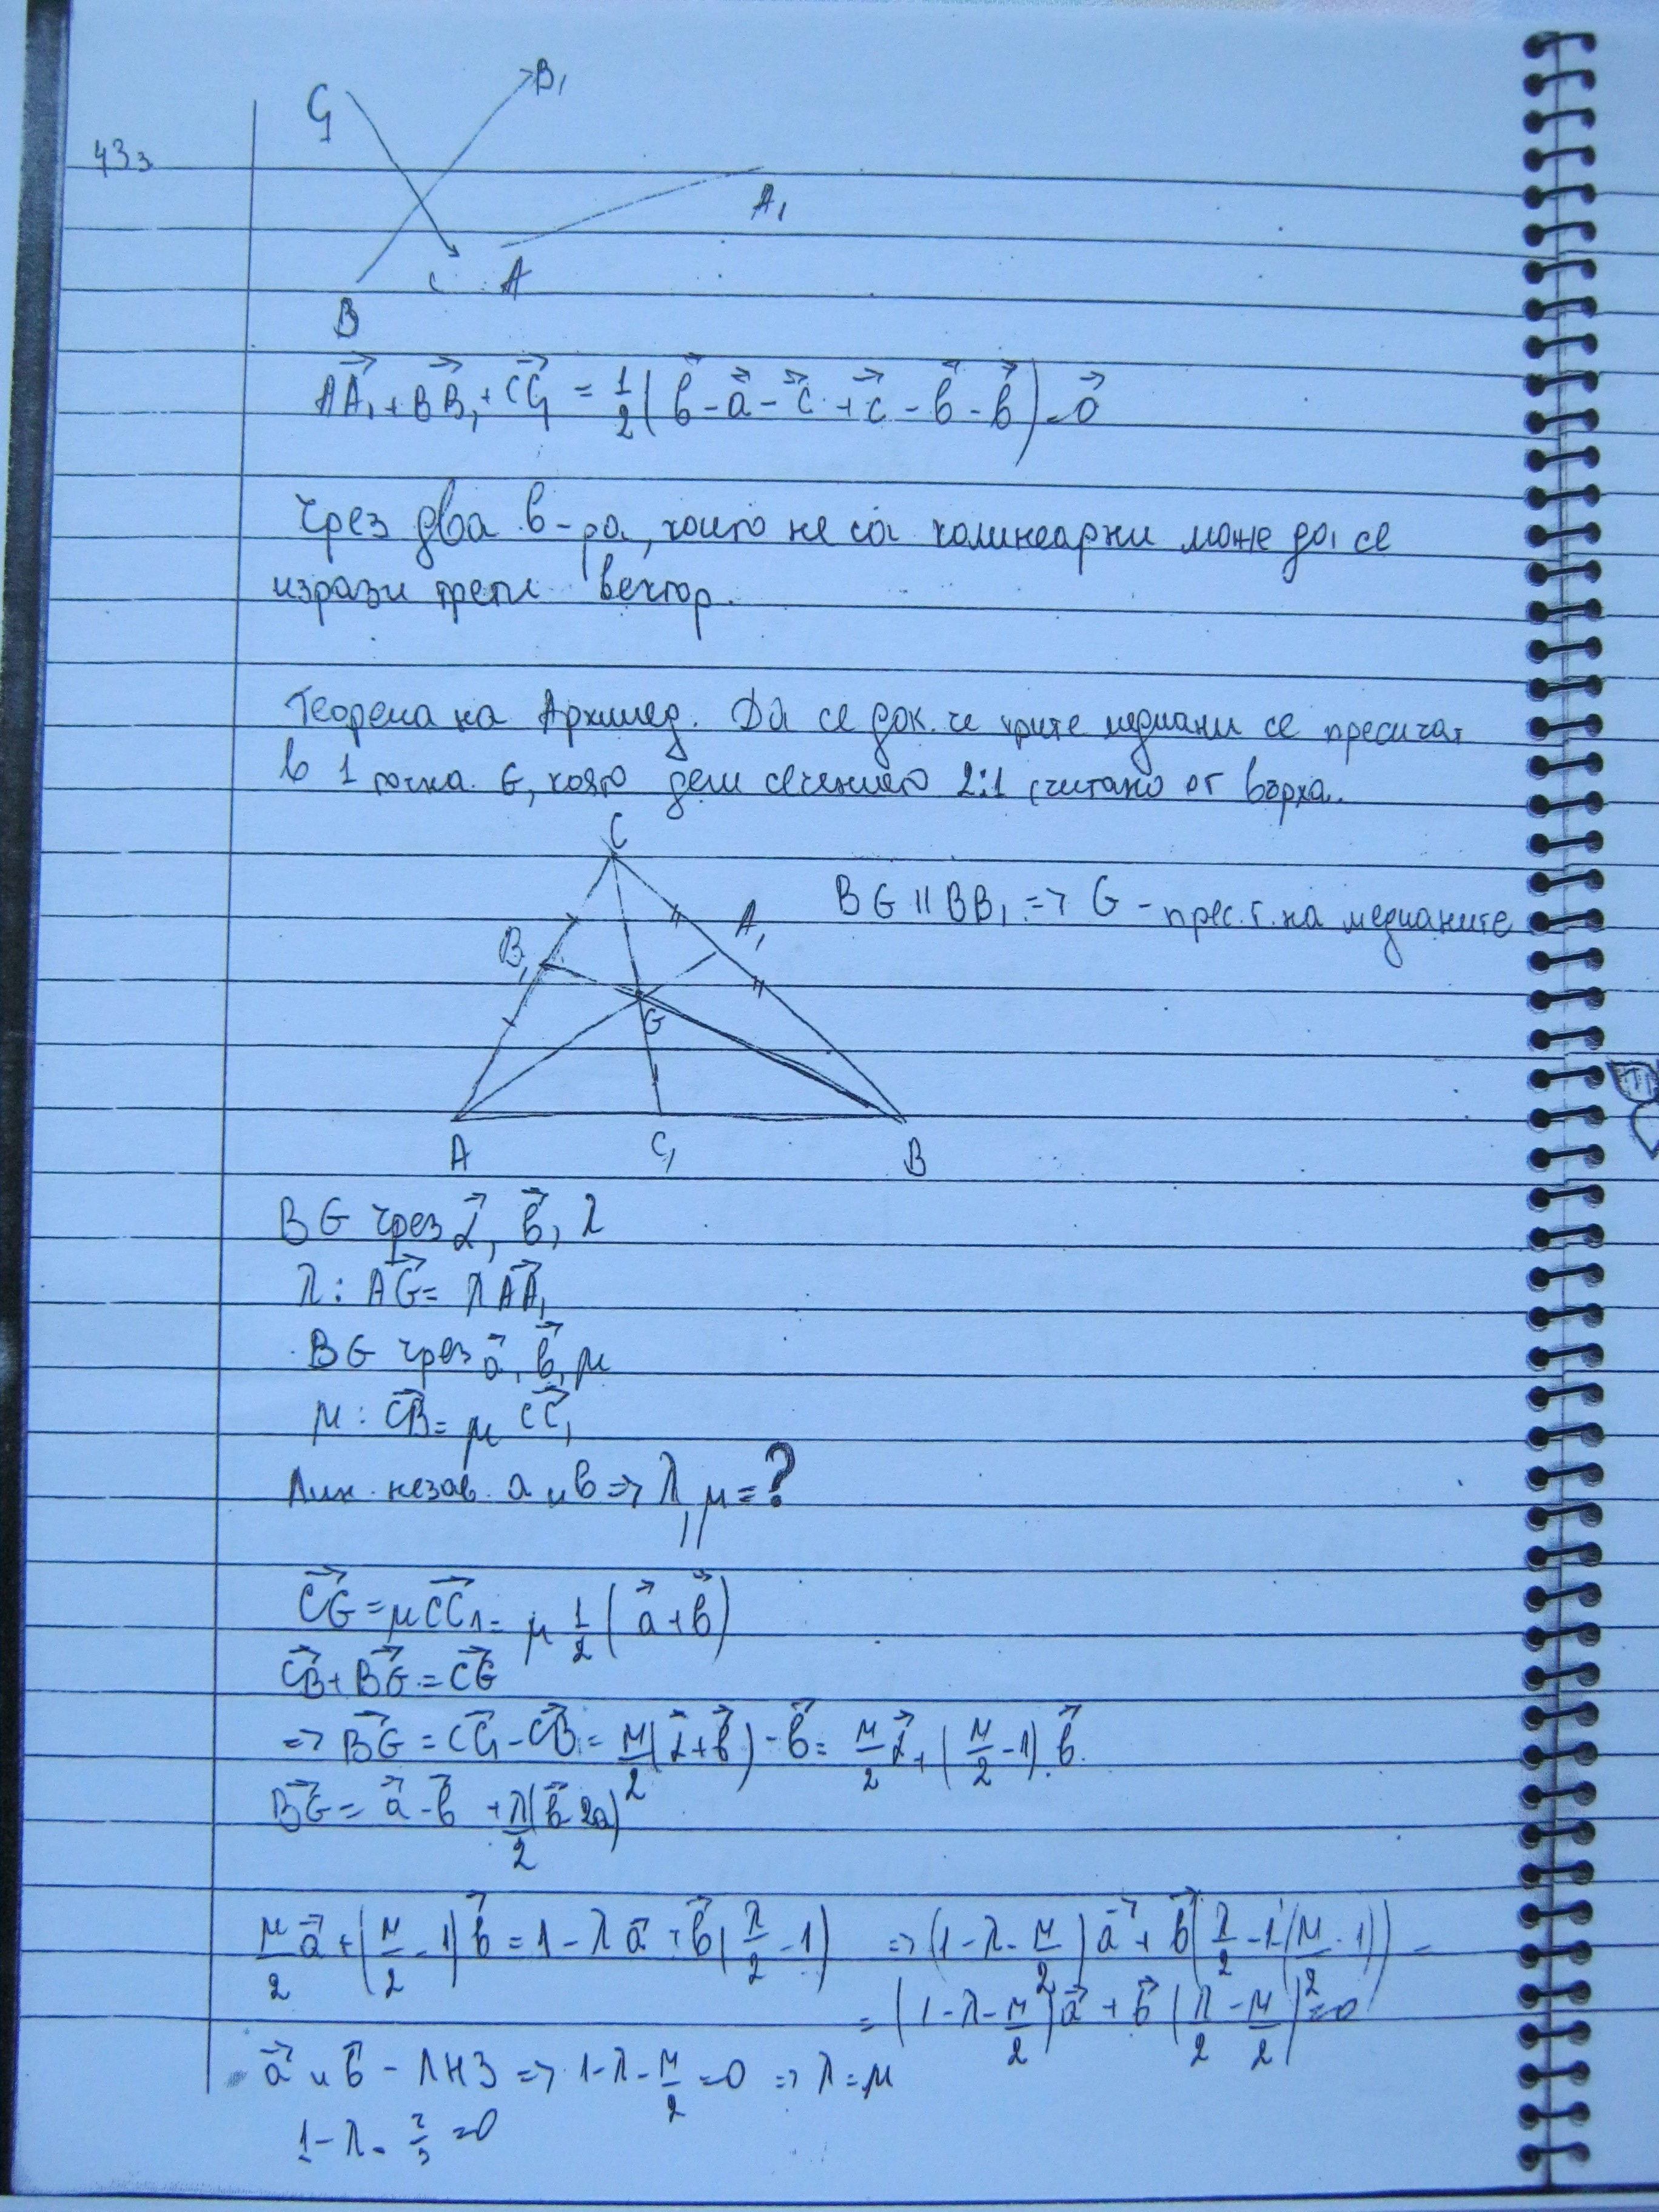 C₁
B₁
433
A₁
C
A
B
AA₁ + BB₁ + CC₁ = 1/2 (b - a - c + c - b - b) = 0
Чрез два в-ра, които не са колинеарни може да се
изрази трети вектор.
Теорема на Архимед. Да се док. че трите медиани се пресичат
в 1 точка G, която дели сечението 2:1 считано от върха.
C
BG || BB₁ => G - прес. т. на медианите
A₁
B₁
G
A
C₁
B
BG чрез a, b, λ
λ: AG = λ AA₁
BG чрез a, b, μ
μ: CB = μ CC₁
Лин. незав. a и b => λ, μ = ?
CG = μ CC₁ = μ 1/2 (a + b)
CB + BG = CG
=> BG = CG - CB = μ/2 (a + b) - b = μ/2 a + (μ/2 - 1) . b
BG = a - b + λ/2 (b 2a)
μ/2 a + (μ/2 - 1) b = 1 - λ a + b (λ/2 - 1) => (1 - λ - μ/2) a + b (λ/2 - 1 (μ/2 - 1)) =
= (1 - λ - μ/2) a + b (λ/2 - μ/2) = 0
a и b - ЛНЗ => 1 - λ - μ/2 = 0 => λ = μ
1 - λ - 2/3 = 0